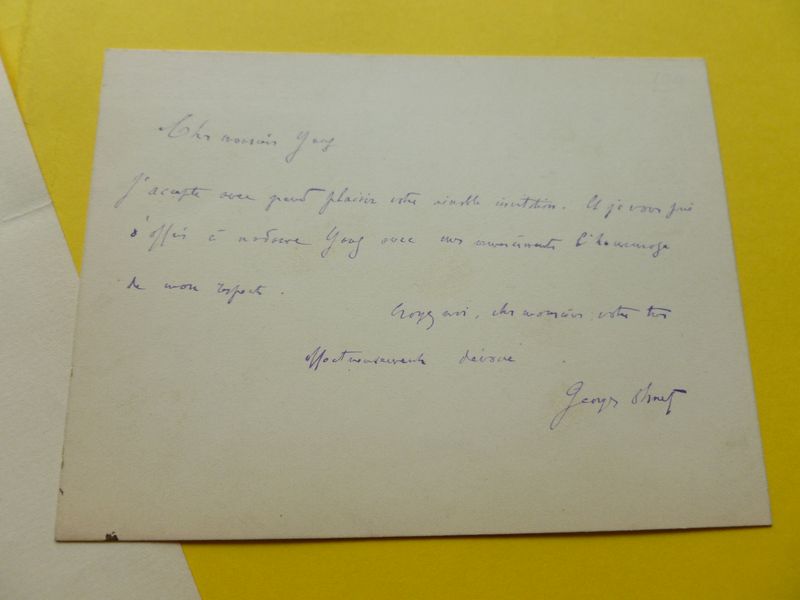 Cher monsieur Yung
J'accepte avec grand plaisir votre aimable invitation. Et je vous prie
d'offrir à madame Yung avec mes remerciements l'hommage
de mon respect.
Croyez moi, cher monsieur, votre très
affectueusement dévoué.
Georges Ohnet